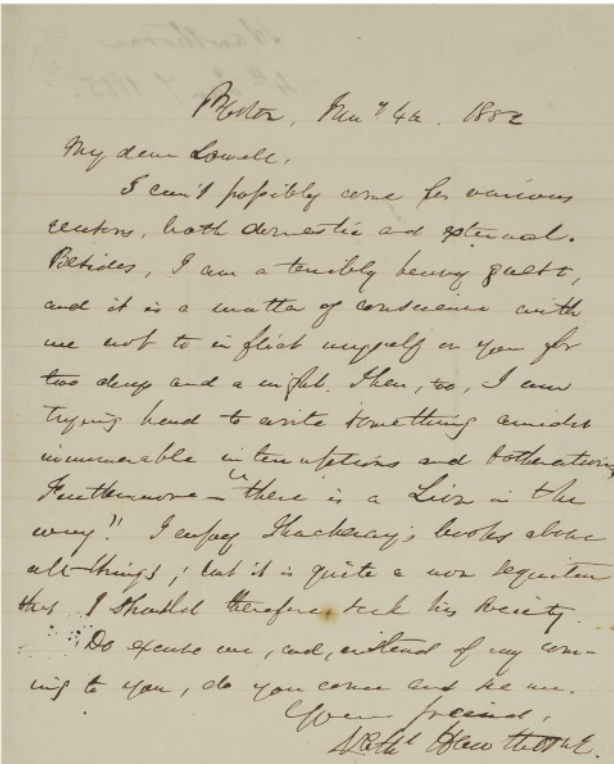 Hawthorne
Jany 4th. 1853
My dear Lowell,
I can't possibly come for various
reasons, both domestic and external.
Besides, I am a terribly heavy guest,
and it is a matter of conscience with
me not to inflict myself on you for
two days and a night. Then, too, I am
trying hard to write something amidst
innumerable interruptions and botherations.
Furthermore — "there is a Lion in the
way"! I enjoy Thackeray's books above
all things; but it is quite a non sequitur
that I should therefore seek his society.
Do excuse me, and, instead of my com-
ing to you, do you come and see me.
Your friend,
Nathl Hawthorne.